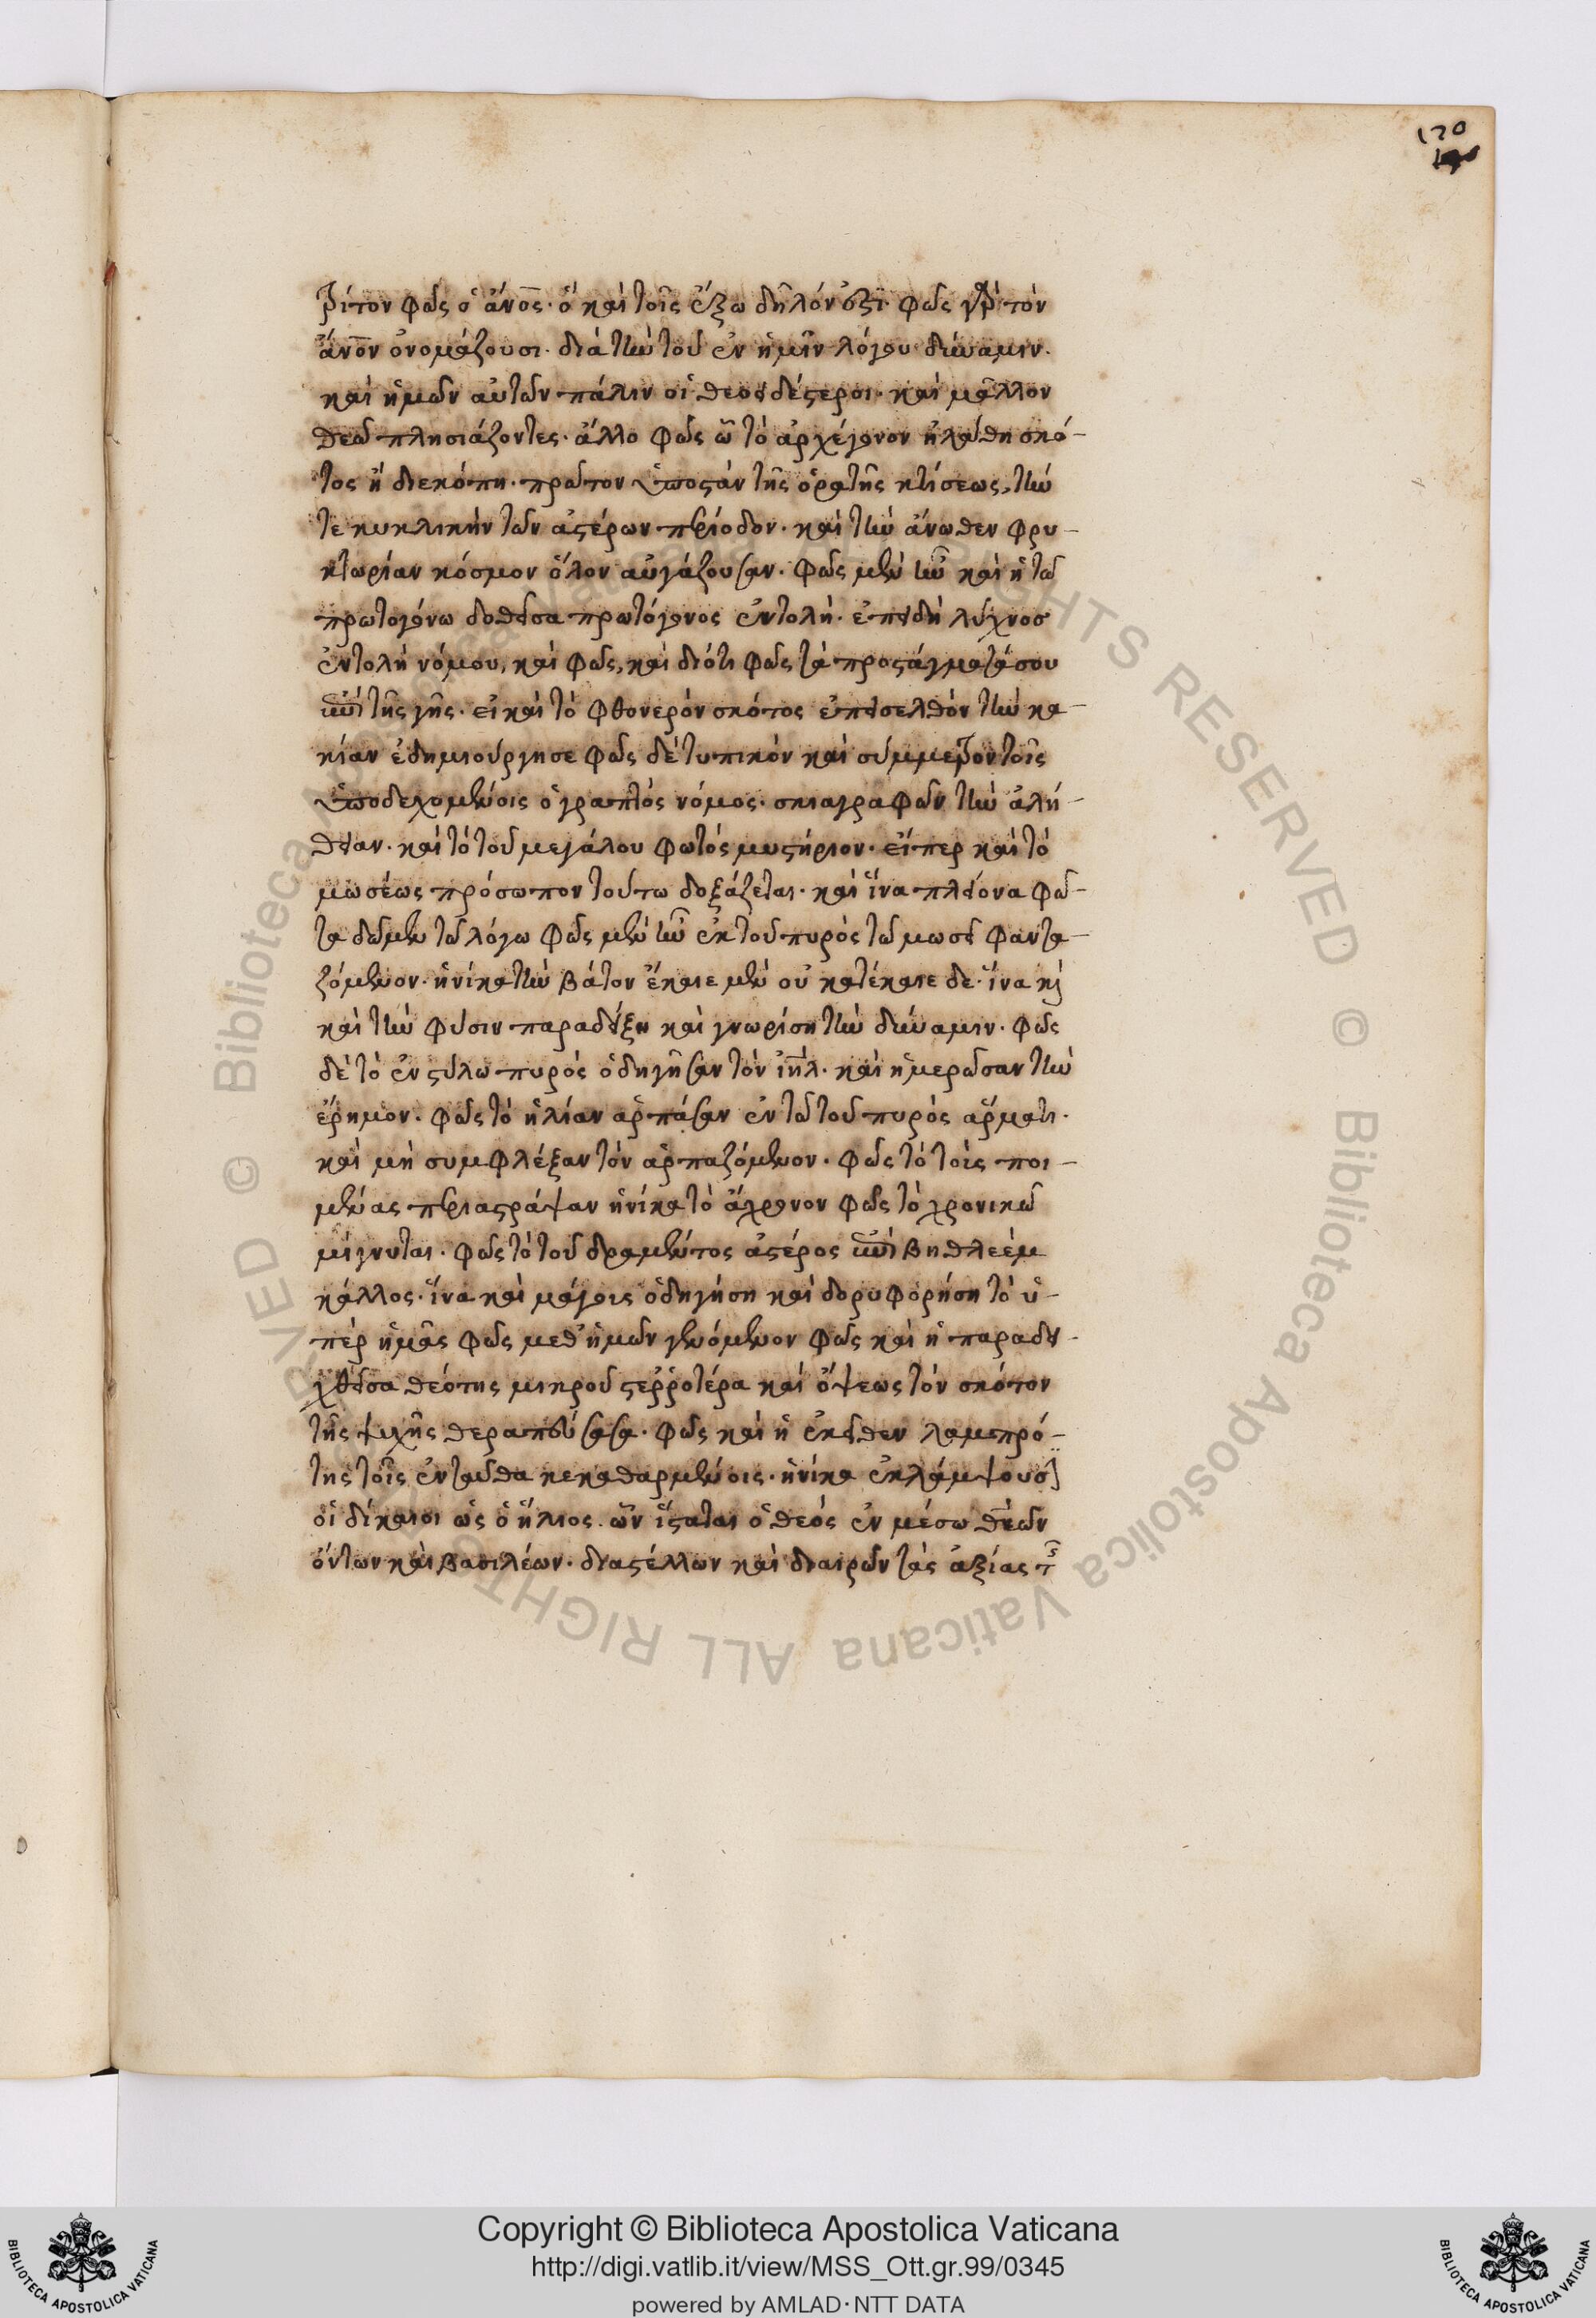 170
τρίτον φῶς ὁ ἄνος· ὃ καὶ τοῖς ἔξω δῆλόν ἐστι· φῶς γὰρ τὸν
ἄνον ὀνομάζουσι· διὰ τὴν τοῦ ἐν ἡμῖν λόγου δύναμιν·
καὶ ἡμῶν αὐτῶν πάλιν οἱ θεοειδέστεροι· καὶ μᾶλλον
θεῶ πλησιάζοντες· ἄλλο φῶς ὧ τὸ ἀρχέγονον ἠλάθη σκό-
τος ἢ διεκόπη· πρῶτον ὑποστὰν τῆς ὁρατῆς κτίσεως, τήν
τε κυκλικὴν τῶν ἀστέρων περίοδον· καὶ τὴν ἄνωθεν φρυ-
κτωρίαν κόσμον ὅλον αὐγάζουσαν· φῶς μὲν ἦν καὶ ἡ τῶ
πρωτογόνω δοθεῖσα πρωτόγονος ἐντολή· ἐπειδὴ λύχνοσ
ἐντολὴ νόμου, καὶ φῶς, καὶ διότι φῶς τὰ προστάγματά σου
ἐπὶ τῆς γῆς· εἰ καὶ τὸ φθονερὸν σκότος ἐπεισελθὸν τὴν κα-
κίαν ἐδημιούργησε φῶς δὲ τυπικὸν καὶ σύμμετρον τοῖς
ὑποδεχομένοις ὁ γραπτὸς νόμος· σκιαγραφῶν τὴν ἀλή-
θειαν· καὶ τὸ τοῦ μεγάλου φωτὸς μυστήριον· εἴπερ καὶ τὸ
μωσέως πρόσωπον τούτω δοξάζεται· καὶ ἵνα πλείονα φῶ-
τα δῶμεν τῶ λόγω φῶς μὲν ἦν ἐκ τοῦ πυρὸς τῶ μωσεῖ φαντα-
ζόμενον· ἡνίκα τὴν βάτον ἔκαιε μὲν οὐ κατέκαιε δε· ἵνα κ
καὶ τὴν φύσιν παραδείξη καὶ γνωρίση τὴν δύναμιν· φῶς
δὲ τὸ ἐν στύλω πυρὸς ὁδηγῆσαν τὸν ἰηλ· καὶ ἡμερῶσαν τὴν
ἔρημον· φῶς τὸ ἡλίαν ἁρπάσαν ἐν τῶ τοῦ πυρὸς ἅρματι·
καὶ μὴ συμφλέξαν τὸν ἁρπαζόμενον· φῶς τὸ τοὶς ποι-
μένας περιαστράψαν ἡνίκα τὸ ἄχρονον φῶς τὸ χρονικῶ
μίγνυται· φῶς τὸ τοῦ δραμόντος ἀστέρος ἐπὶ βηθλεὲμ
κάλλος· ἵνα καὶ μάγοις ὁδηγήση καὶ δορυφορήση τὸ ὑ-
πὲρ ἡμᾶς φῶς μεθ' ἡμῶν γενόμενον φῶς καὶ ἡ παραδει-
χθεῖσα θεότης μικροῦ στερροτέρα καὶ ὄψεως τὸν σκότον
τῆς ψυχῆς θεραπεύσασα· φῶς καὶ ἡ ἐκεῖθεν λαμπρό-
της τοῖς ἐνταῦθα κεκαθαρμένοις· ἡνίκα ἐκλάμψουσ
οἱ δίκαιοι ὡς ὁ ἥλιος ὧν ἵσταται ὁ θεὸς ἐν μέσω θεῶν
ὄντων καὶ βασιλέων· διαστέλλων καὶ διαιρῶν τὰς ἀξίας τ
© Biblioteca Apostolica Vaticana ALL RIGHTS RESERVED © Biblioteca Apostolica Vaticana ALL RIGHTS RESERVED
Copyright © Biblioteca Apostolica Vaticana
http://digi.vatlib.it/view/MSS_Ott.gr.99/0345
powered by AMLAD·NTT DATA
BIBLIOTECA APOSTOLICA VATICANA
BIBLIOTECA APOSTOLICA VATICANA